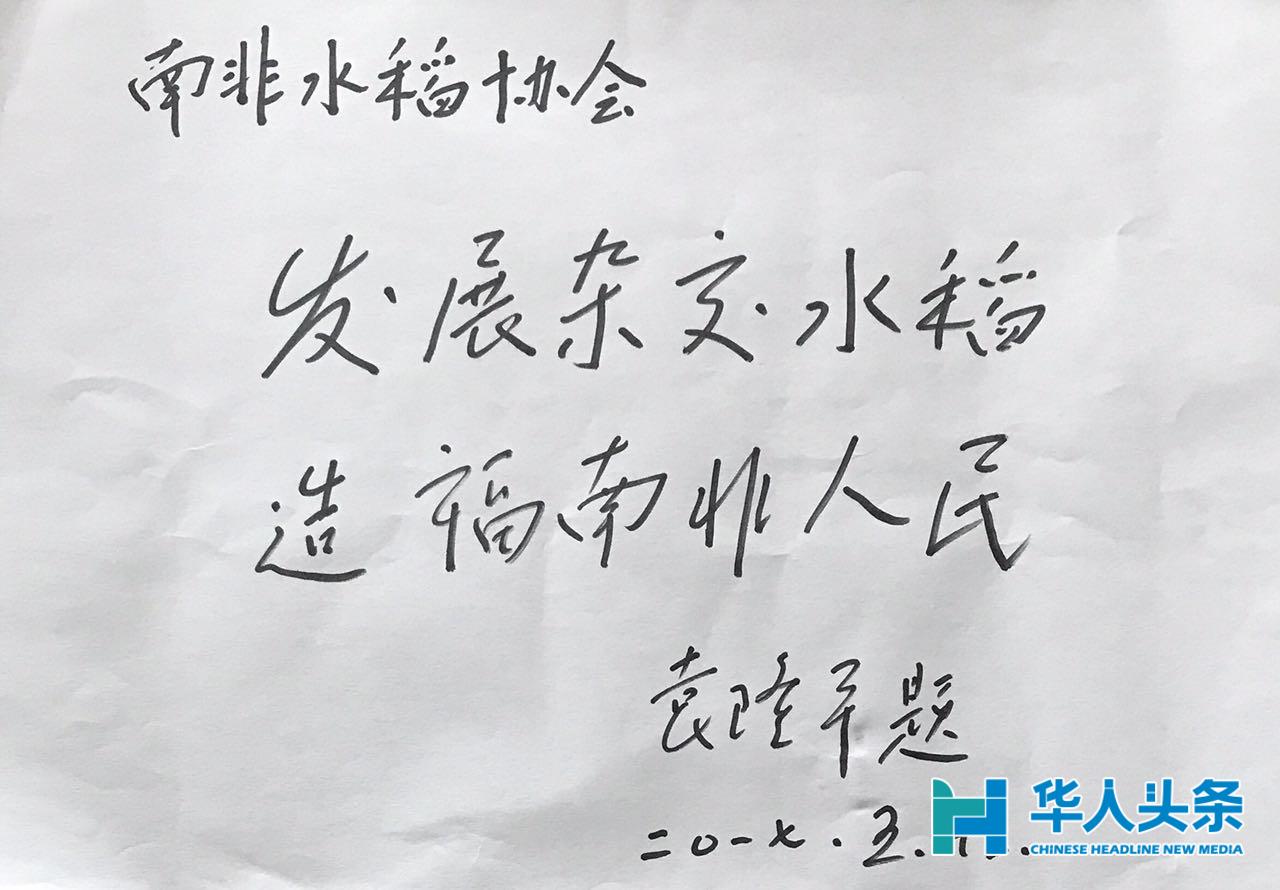 南非水稻协会
发展杂交水稻
造福南非人民
袁隆平题
二〇一七.五.
华人头条
CHINESE HEADLINE NEW MEDIA